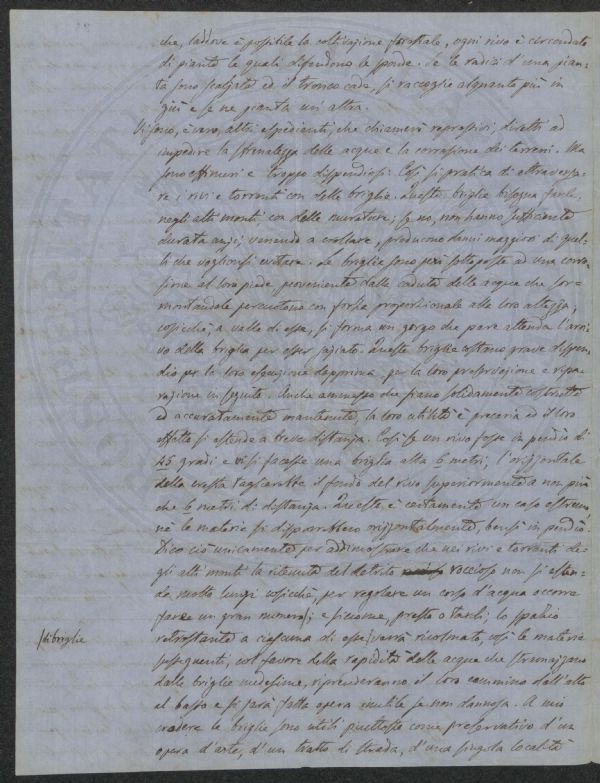 che, laddove è possibile la coltivazione forestale, ogni rivo è circondato
di piante le quali difendono le sponde. Se le radici d'una pian-
ta sono scalzate ed il tronco cade, si raccoglie alquanto più in
giù e se ne pianta un'altra.
Vi sono, è vero, altri espedienti, che chiamerò repressivi, diretti ad
impedire la sfrenatezza delle acque e la corrosione dei terreni. Ma
sono effimeri e troppo dispendiosi. Così si pratica di attraversa-
re i rivi e torrenti con delle briglie. Queste briglie bisogna farle,
negli alti monti, con delle murature; se no, non hanno sufficiente
durata anzi, venendo a crollare, producono danni maggiori di quel-
li che voglionsi evitare. Le briglie sono poi sottoposte ad una corro-
sione al loro piede proveniente dalla caduta delle acque che sor-
montandole percuotono con forza proporzionale alla loro altezza,
cosicchè, a valle di esse, si forma un gorgo che pare attenda l'arri-
vo della briglia per esser saziato. Queste briglie costano grave dispen-
dio per la loro esecuzione dapprima per la loro preservazione e ripa-
razione in seguito. Anche ammesso che siano solidamente costrutte
ed accuratamente mantenute, la loro utilità è precaria ed il loro
effetto si estende a breve distanza. Così se un rivo fosse in pendio di
45 gradi e vi si facesse una briglia alta 6 metri, l'orizzontale
della cresta taglierebbe il fondo del rivo superiormente a non più
che 6 metri di distanza. Questo è certamente un caso estremo,
nè le materie si disporrebbero orizzontalmente, bensì in pendio.
Dico ciò unicamente per addimostrare che nei rivi e torrenti de-
gli alti monti la ritenuta del detrito roccioso non si esten-
de molto lungi cosicchè, per regolare un corso d'acqua occorre
farne un gran numero/; e siccome, presto o tardi, lo spazio
retrostante a ciascuna di esse verrà ricolmato, così le materie
susseguenti, col favore della rapidità delle acque che stramazzano
dalle briglie medesime, riprenderanno il loro cammino dall'alto
al basso e si sarà fatta opera inutile se non dannosa. A mio
credere le briglie sono utili piuttosto come preservativo d'un
opera d'arte, d'un tratto di strada, d'una singola località
/di briglie